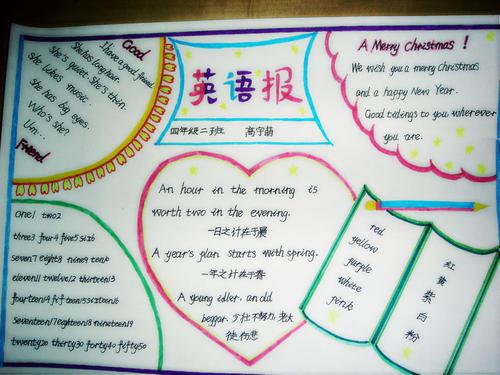 Good
I have a good friend.
She has long hair.
She's quiet. She's thin.
She likes music.
She has big eyes.
Who's she?
Um...
Friend
英语报
四年级二班 高宇萌
A Merry Christmas !
We wish you a merry christmas
and a happy New Year.
Good tidings to you wherever
you are.
An hour in the morning is
worth two in the evening.
一日之计在于晨
A year's plan starts with spring.
一年之计在于春
A young idler. an old
beggar. 少壮不努力, 老大
徒伤悲
one1 two2
three3 four4 five5 six6
seven7 eight8 nine9 ten10
eleven11 twelve12 thirteen13
fourteen14 fifteen15 sixteen16
seventeen17 eighteen18 nineteen19
twenty20 thirty30 forty40 fifty50
red
yellow
purple
white
pink
红
黄
紫
白
粉